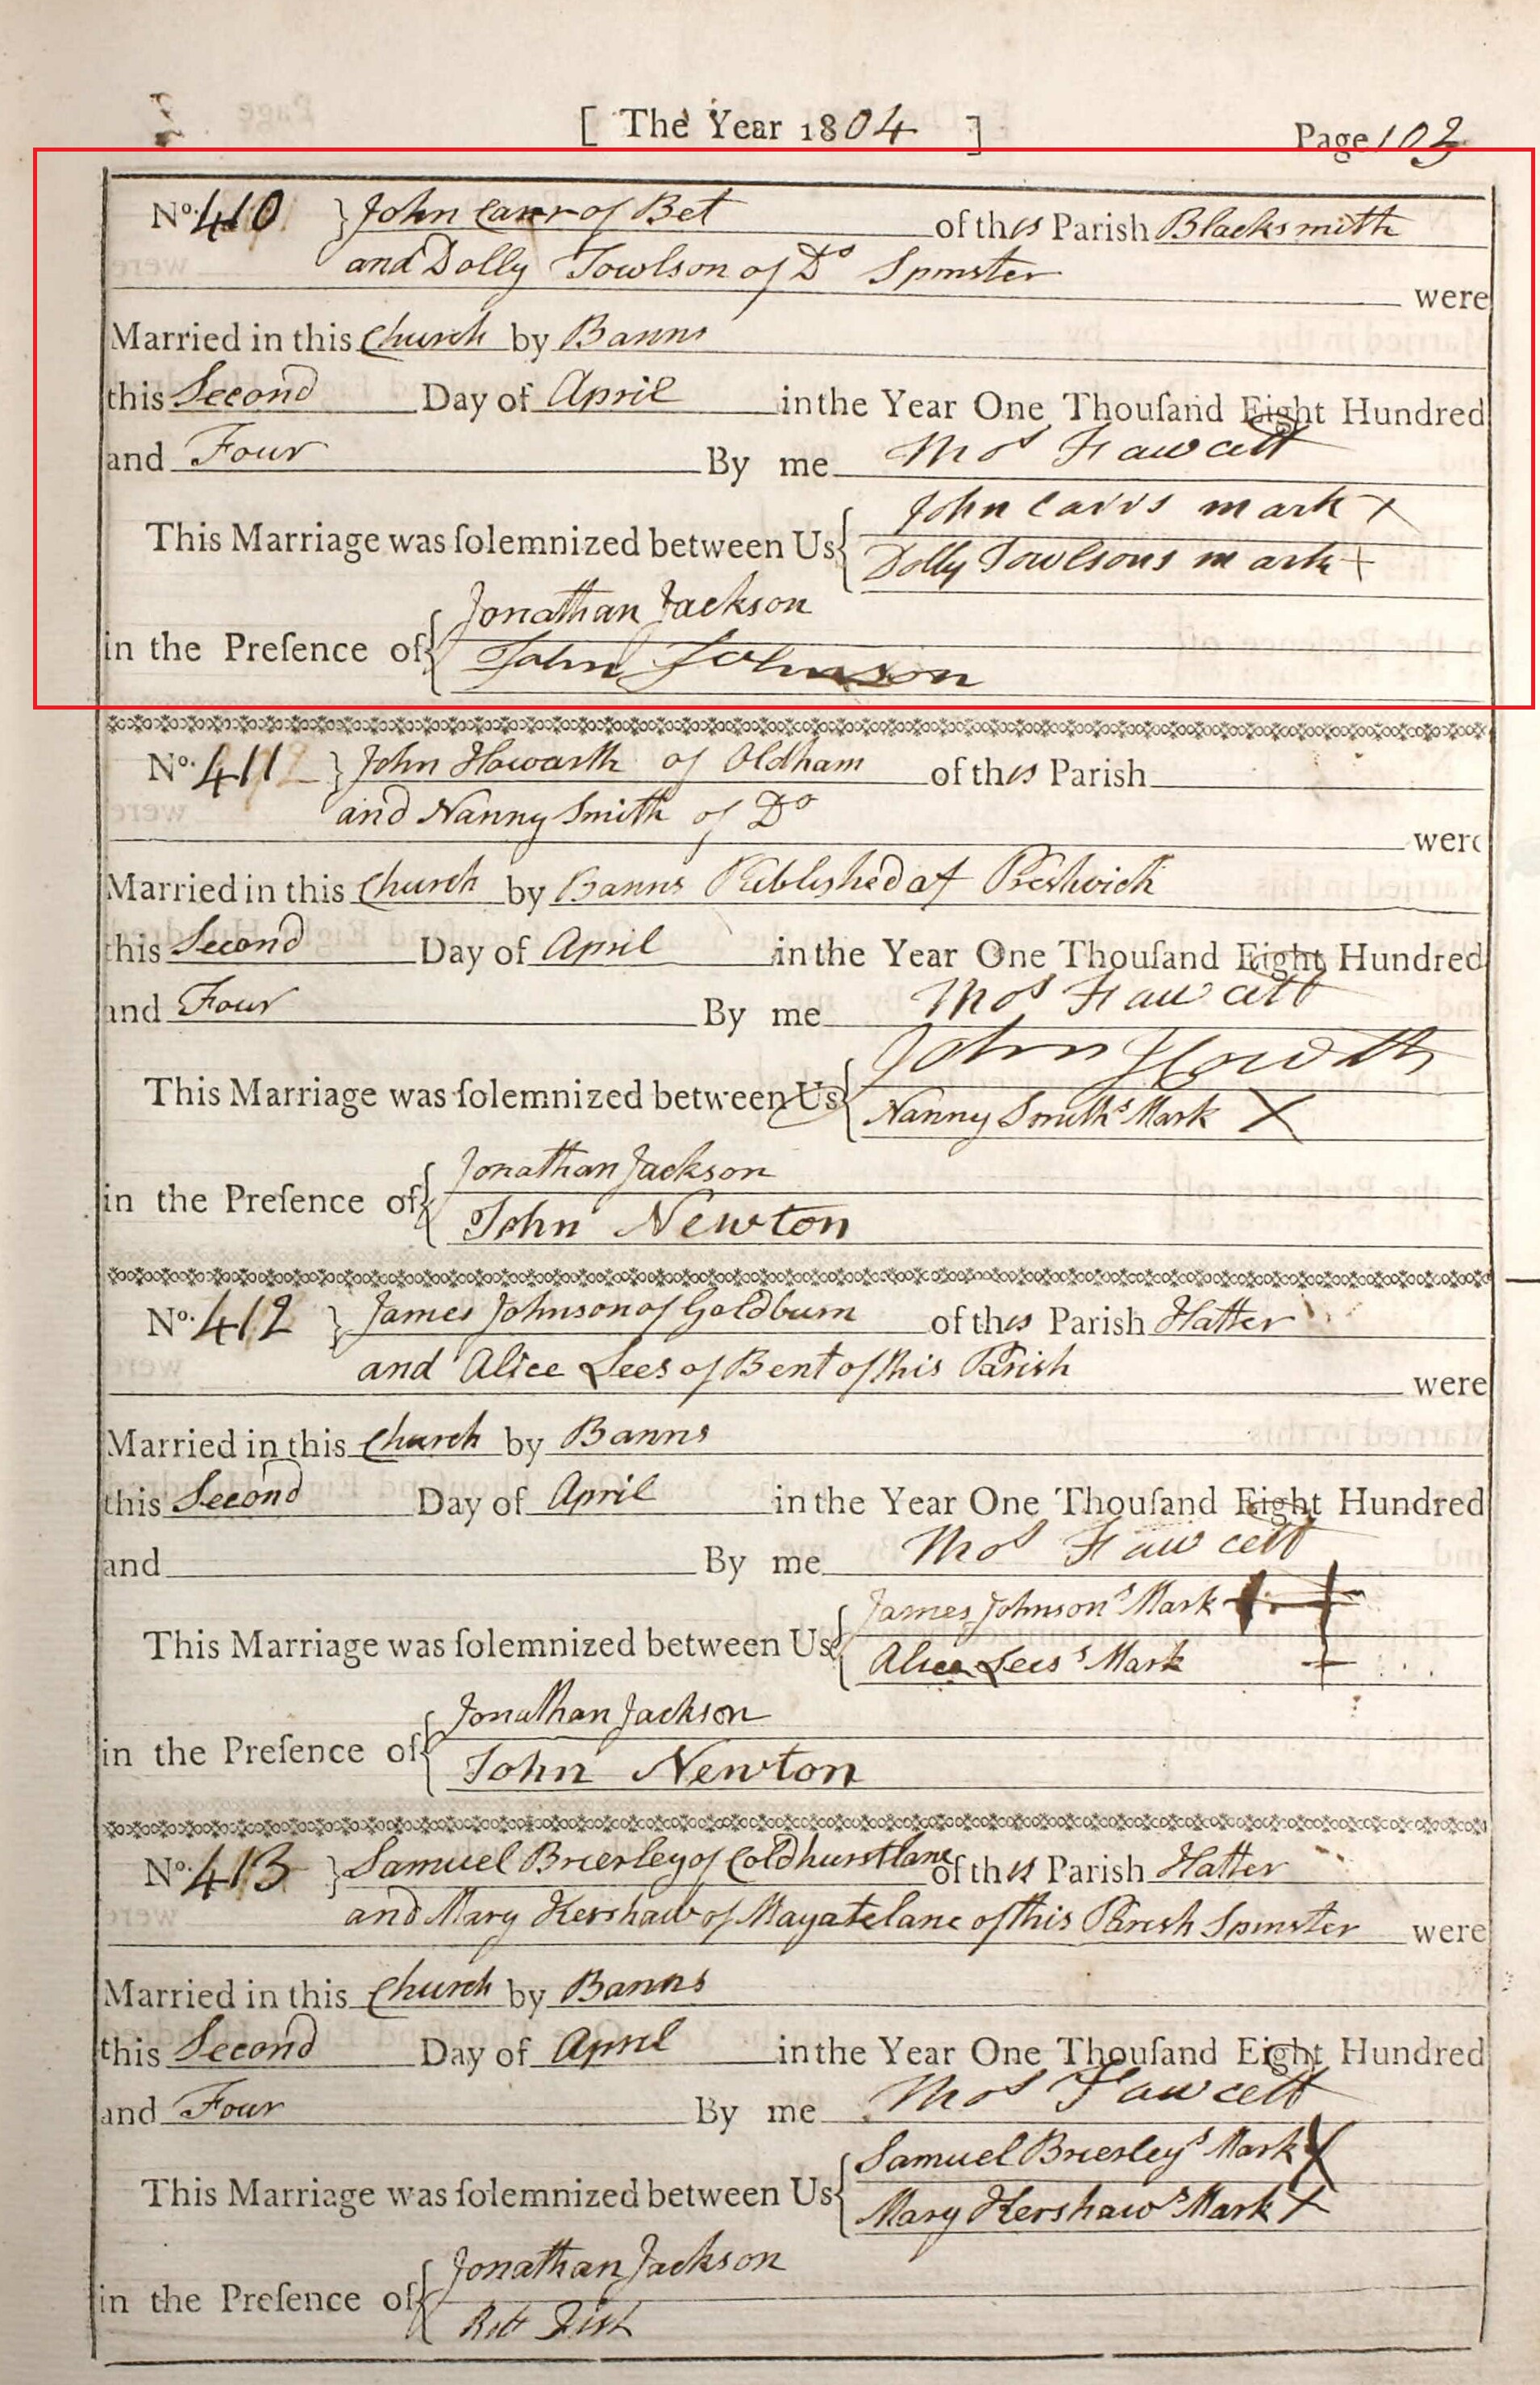 [ The Year 1804 ] Page 103
No. 410 } John Carr of Bet of this Parish Blacksmith
and Dolly Towlson of Do Spinster were
Married in this Church by Banns
this Second Day of April in the Year One Thouſand Eight Hundred
and Four By me Thos Fawcett
This Marriage was ſolemnized between Us { John Carrs mark X
Dolly Towlsons mark +
in the Preſence of { Jonathan Jackson
John Johnson
No. 411 } John Howarth of Oldham of this Parish
and Nanny Smith of Do were
Married in this Church by Banns Published at Prestwich
this Second Day of April in the Year One Thouſand Eight Hundred
and Four By me Thos Fawcett
This Marriage was ſolemnized between Us { John Howth
Nanny Smiths Mark X
in the Preſence of { Jonathan Jackson
John Newton
No. 412 } James Johnson of Goldburn of this Parish Hatter
and Alice Lees of Bent of this Parish were
Married in this Church by Banns
this Second Day of April in the Year One Thouſand Eight Hundred
and By me Thos Fawcett
This Marriage was ſolemnized between Us { James Johnsons Mark +
Alice Lees s Mark +
in the Preſence of { Jonathan Jackson
John Newton
No. 413 } Samuel Brierley of Coldhurstlane of this Parish Hatter
and Mary Kershaw of Mayatelane of this Parish Spinster were
Married in this Church by Banns
this Second Day of April in the Year One Thouſand Eight Hundred
and Four By me Thos Fawcett
This Marriage was ſolemnized between Us { Samuel Brierleys Mark X
Mary Kershaws Mark X
in the Preſence of { Jonathan Jackson
Robt